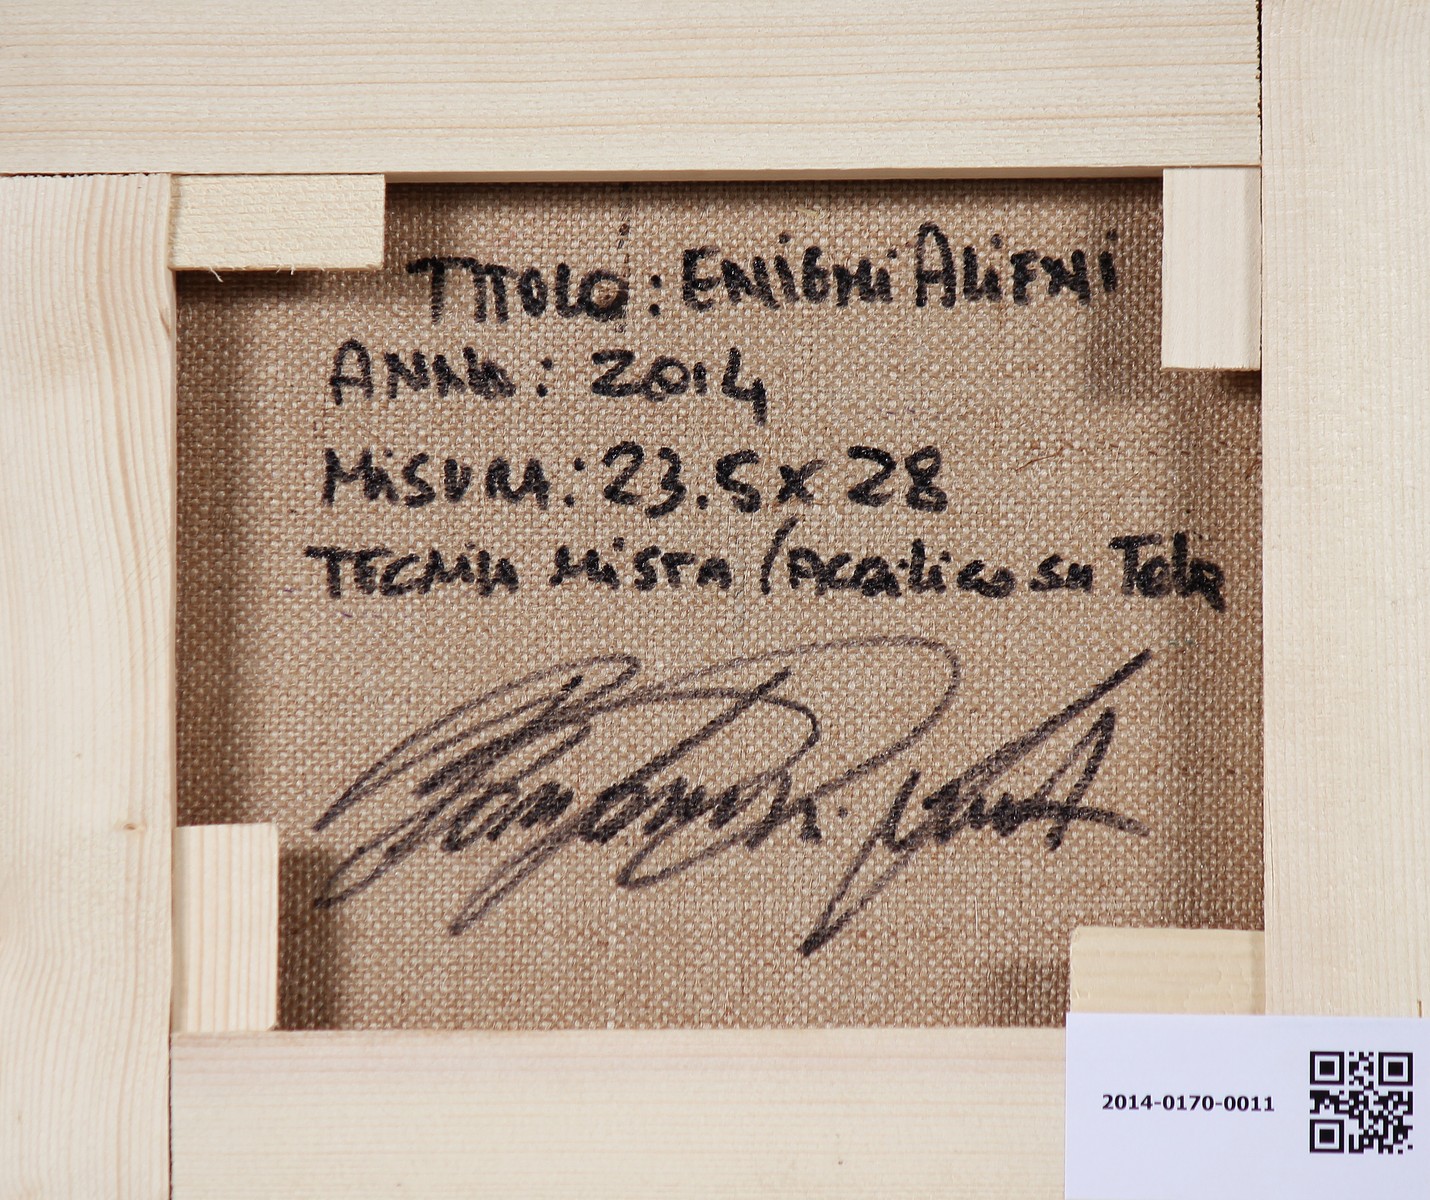 TITOLO: ENIGMI ALIENI
ANNO: 2014
MISURA: 23.5 x 28
TECNICA MISTA (ACRILICO SU TELA
2014-0170-0011